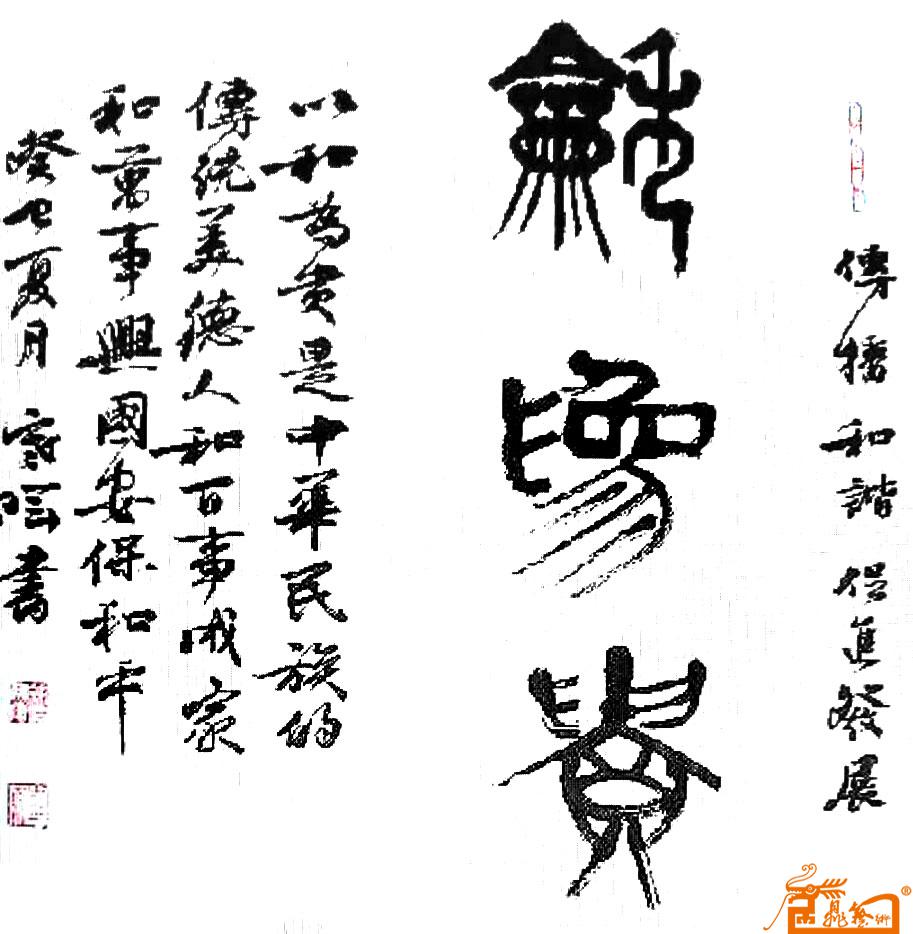 傳播和諧促進發展
龢爲貴
以和為貴是中華民族的
傳統美德人和百事成家
和萬事興國安保和平
癸巳夏月 書